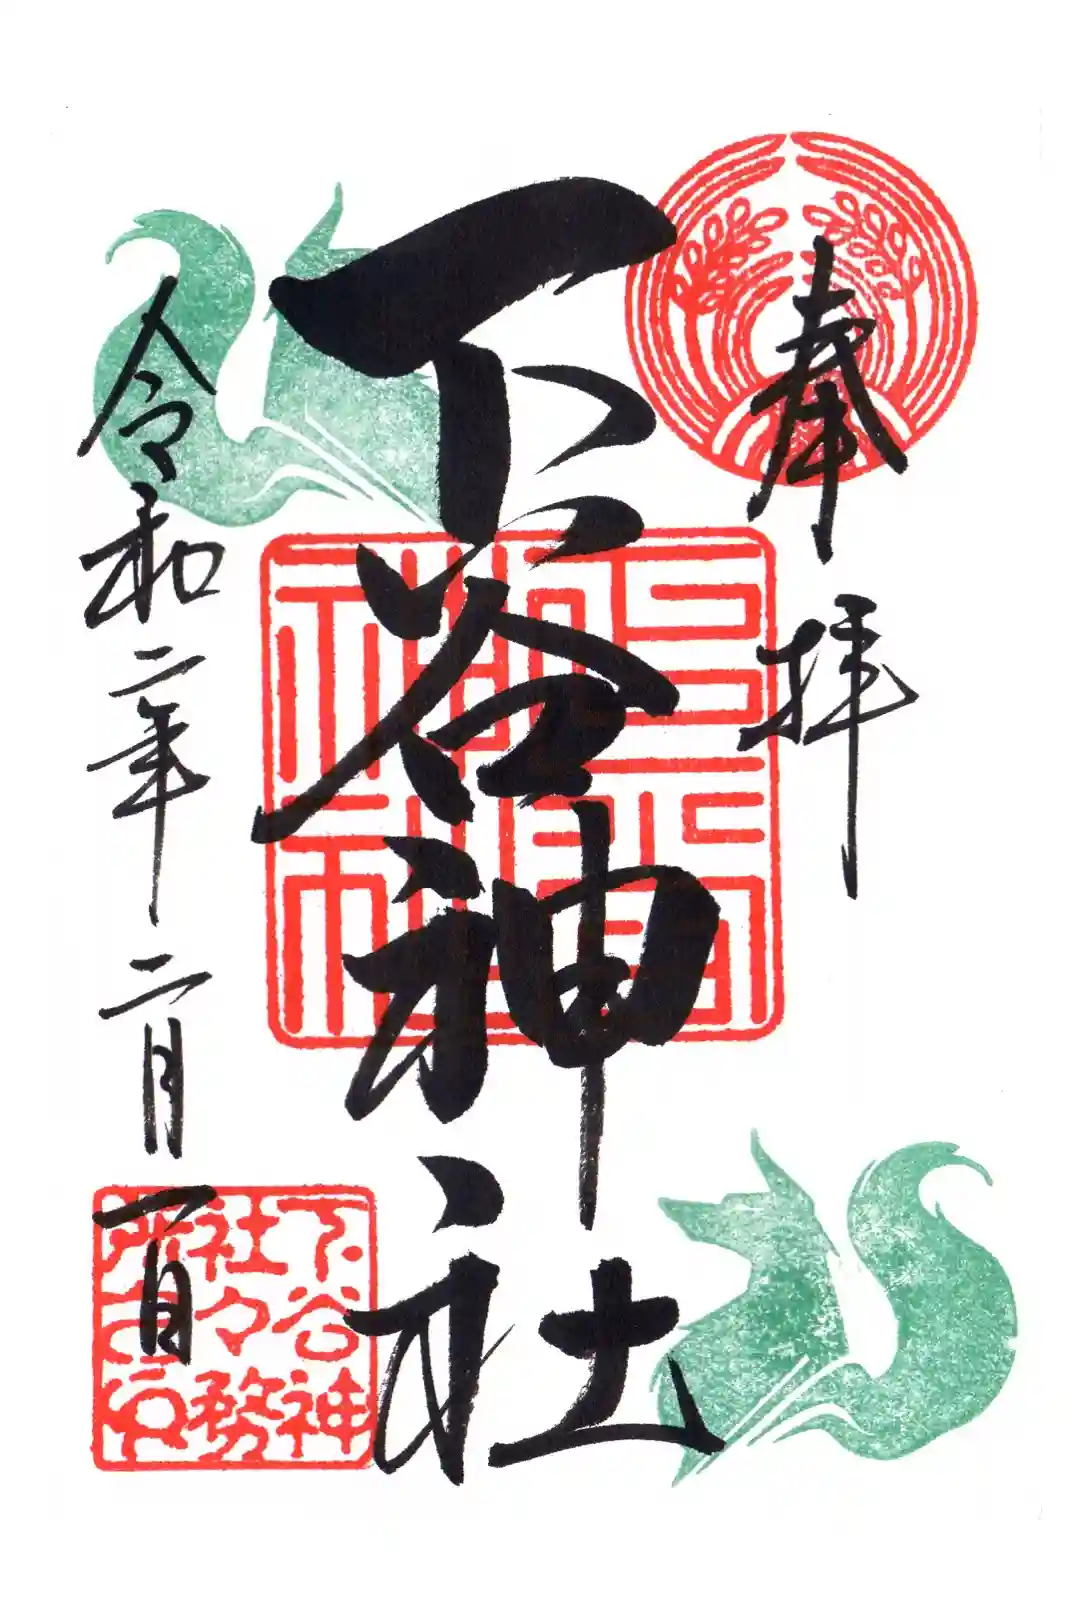 奉拝
下谷神社
令和二年二月一日
下谷神
社々務
所之印